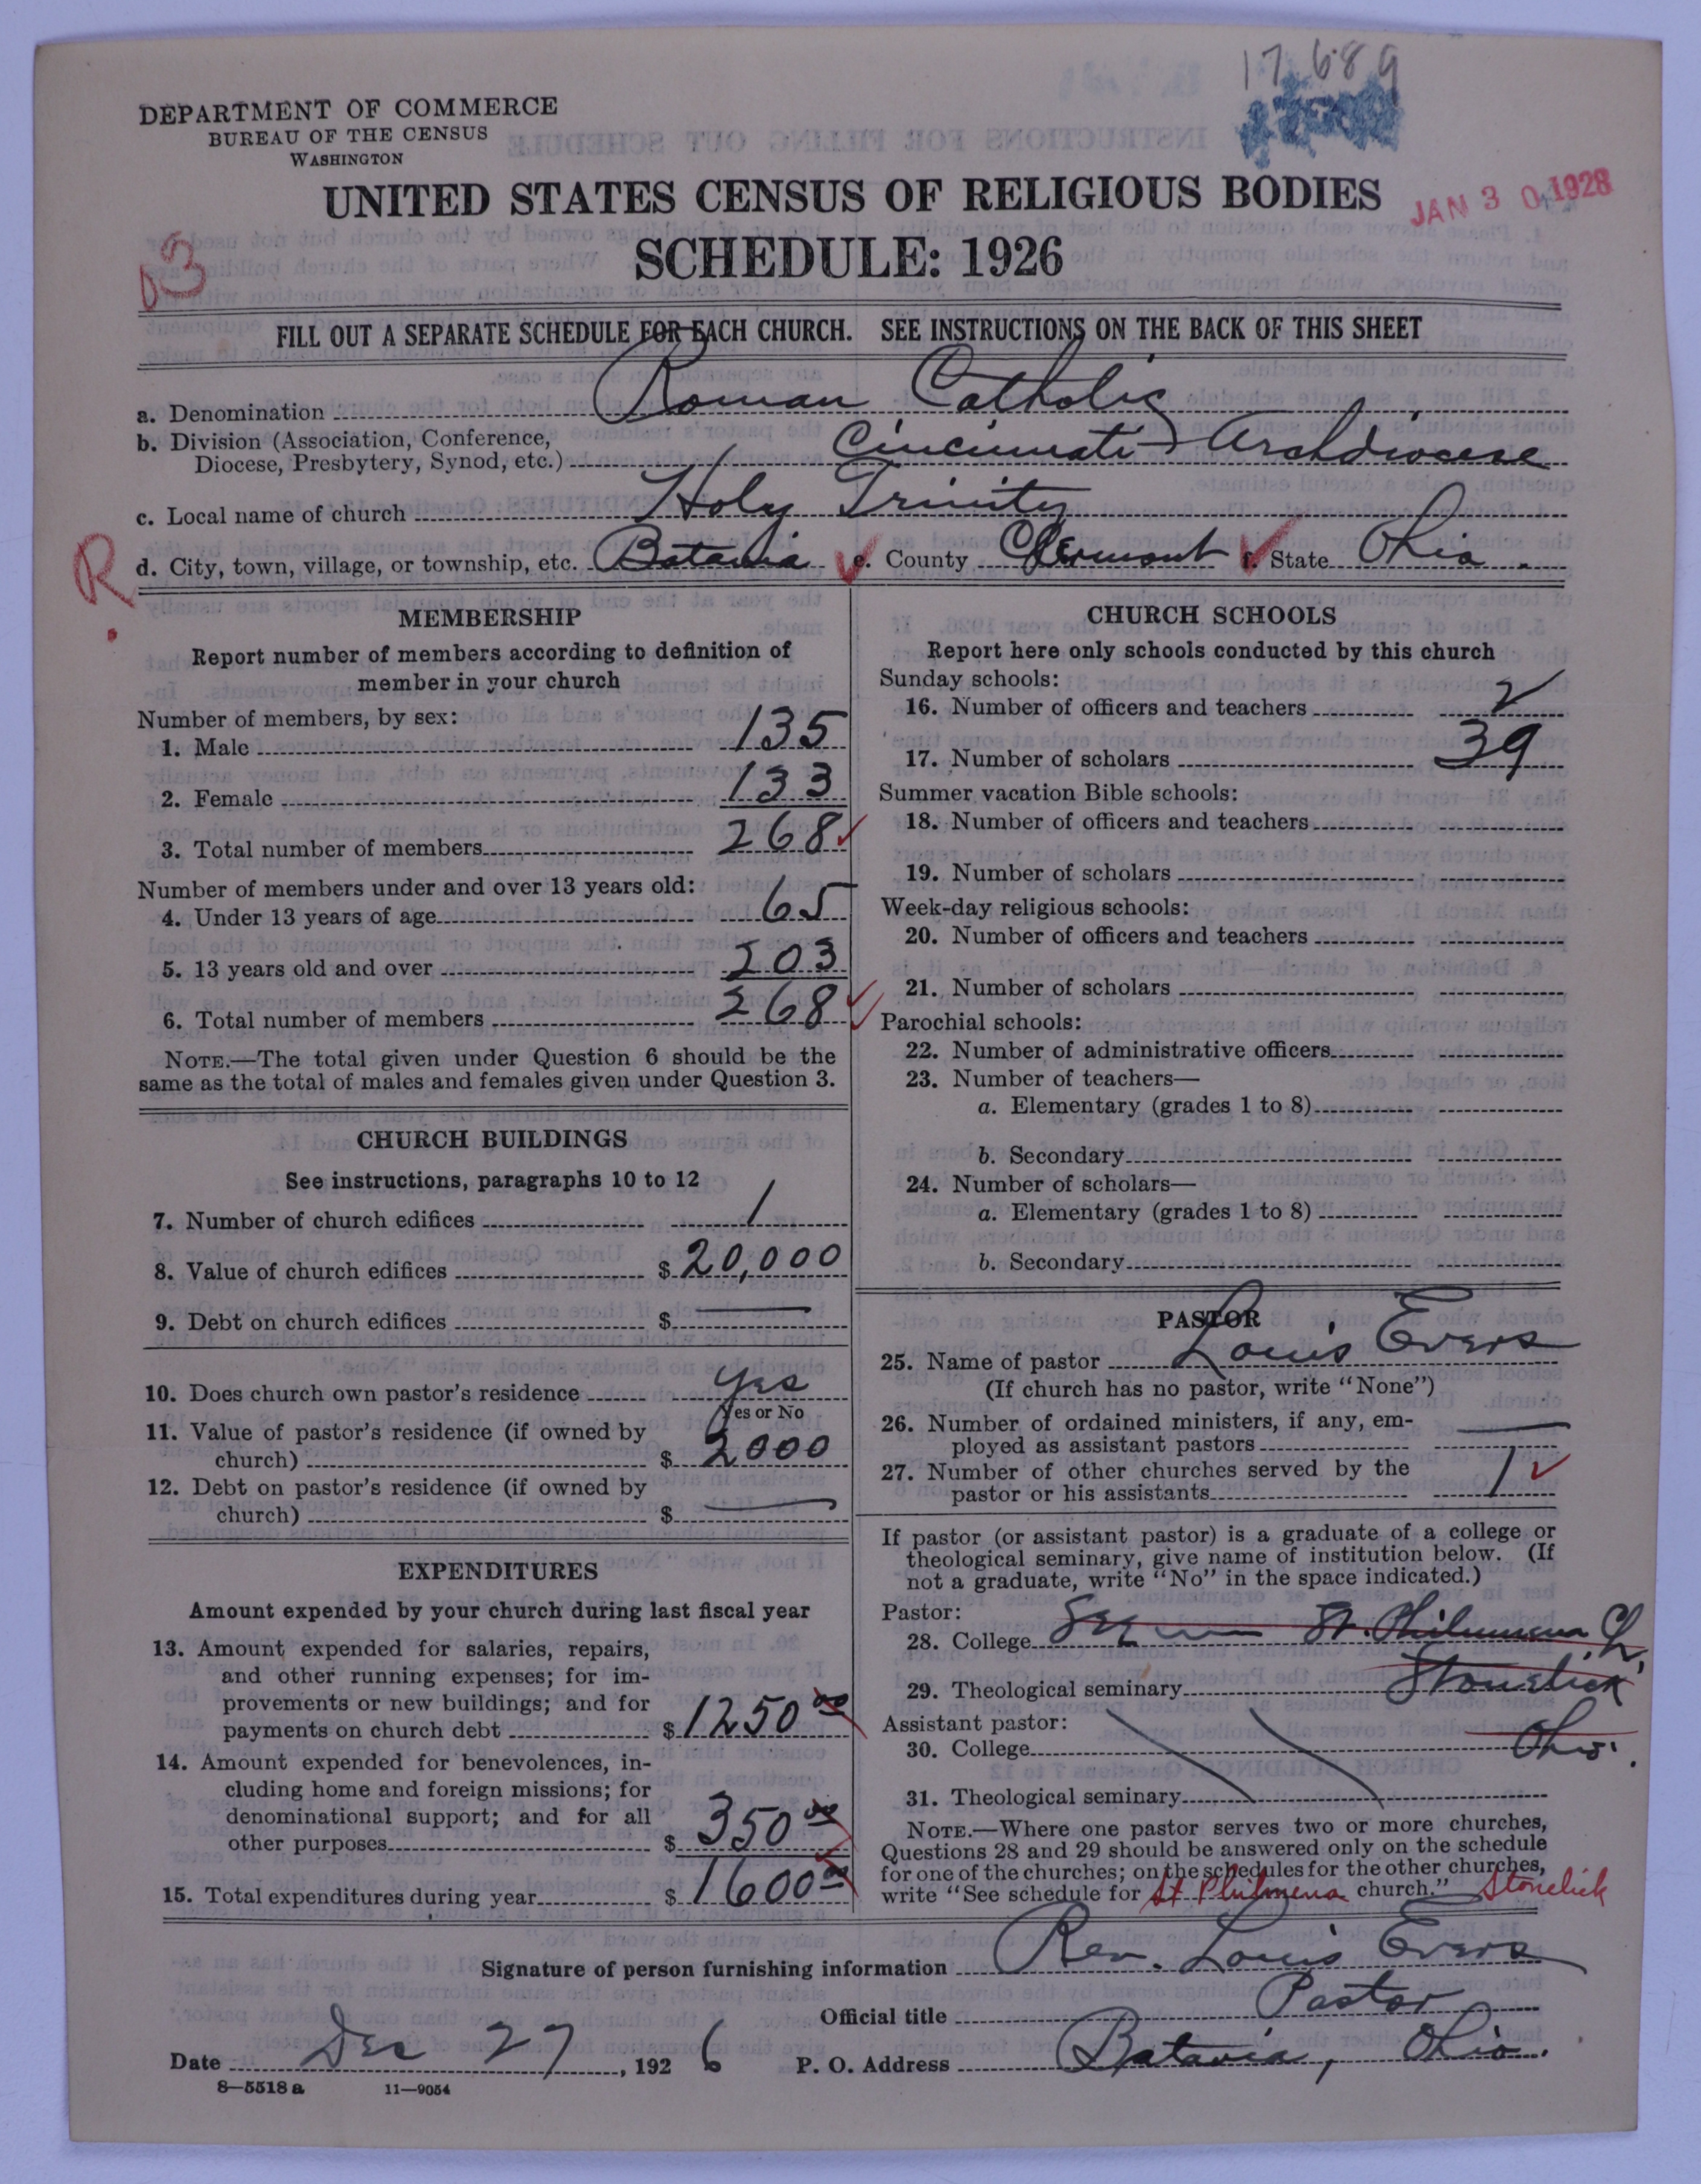 17689
DEPARTMENT OF COMMERCE
BUREAU OF THE CENSUS
WASHINGTON
UNITED STATES CENSUS OF RELIGIOUS BODIES
JAN 30 1928
SCHEDULE: 1926
03
FILL OUT A SEPARATE SCHEDULE FOR EACH CHURCH. SEE INSTRUCTIONS ON THE BACK OF THIS SHEET
a. Denomination Roman Catholic
b. Division (Association, Conference, Diocese, Presbytery, Synod, etc.) Cincinnati Archdiocese
c. Local name of church Holy Trinity
R.
d. City, town, village, or township, etc. Batavia e. County Clermont f. State Ohio
MEMBERSHIP
Report number of members according to definition of
member in your church
Number of members, by sex:
1. Male 135
2. Female 133
3. Total number of members 268
Number of members under and over 13 years old:
4. Under 13 years of age 65
5. 13 years old and over 203
6. Total number of members 268
NOTE.—The total given under Question 6 should be the
same as the total of males and females given under Question 3.
CHURCH BUILDINGS
See instructions, paragraphs 10 to 12
7. Number of church edifices 1
8. Value of church edifices $ 20,000
9. Debt on church edifices $ —
10. Does church own pastor's residence yes
Yes or No
11. Value of pastor's residence (if owned by
church) $ 2000
12. Debt on pastor's residence (if owned by
church) $ —
EXPENDITURES
Amount expended by your church during last fiscal year
13. Amount expended for salaries, repairs,
and other running expenses; for im-
provements or new buildings; and for
payments on church debt $ 1250 00
14. Amount expended for benevolences, in-
cluding home and foreign missions; for
denominational support; and for all
other purposes $ 350 00
15. Total expenditures during year $ 1600 00
CHURCH SCHOOLS
Report here only schools conducted by this church
Sunday schools:
16. Number of officers and teachers 2
17. Number of scholars 39
Summer vacation Bible schools:
18. Number of officers and teachers
19. Number of scholars
Week-day religious schools:
20. Number of officers and teachers
21. Number of scholars
Parochial schools:
22. Number of administrative officers
23. Number of teachers—
a. Elementary (grades 1 to 8)
b. Secondary
24. Number of scholars—
a. Elementary (grades 1 to 8)
b. Secondary
PASTOR
25. Name of pastor Louis Evers
(If church has no pastor, write "None")
26. Number of ordained ministers, if any, em-
ployed as assistant pastors —
27. Number of other churches served by the
pastor or his assistants 1
If pastor (or assistant pastor) is a graduate of a college or
theological seminary, give name of institution below. (If
not a graduate, write "No" in the space indicated.)
Pastor:
28. College See St. Philumena Ch,
29. Theological seminary Stonelick
Assistant pastor:
30. College Ohio.
31. Theological seminary
NOTE.—Where one pastor serves two or more churches,
Questions 28 and 29 should be answered only on the schedule
for one of the churches; on the schedules for the other churches,
write "See schedule for St Philmena church." Stonelick
Signature of person furnishing information Rev. Louis Evers
Official title Pastor
Date Dec 27, 1926 P. O. Address Batavia, Ohio.
8—5518 a 11—9054